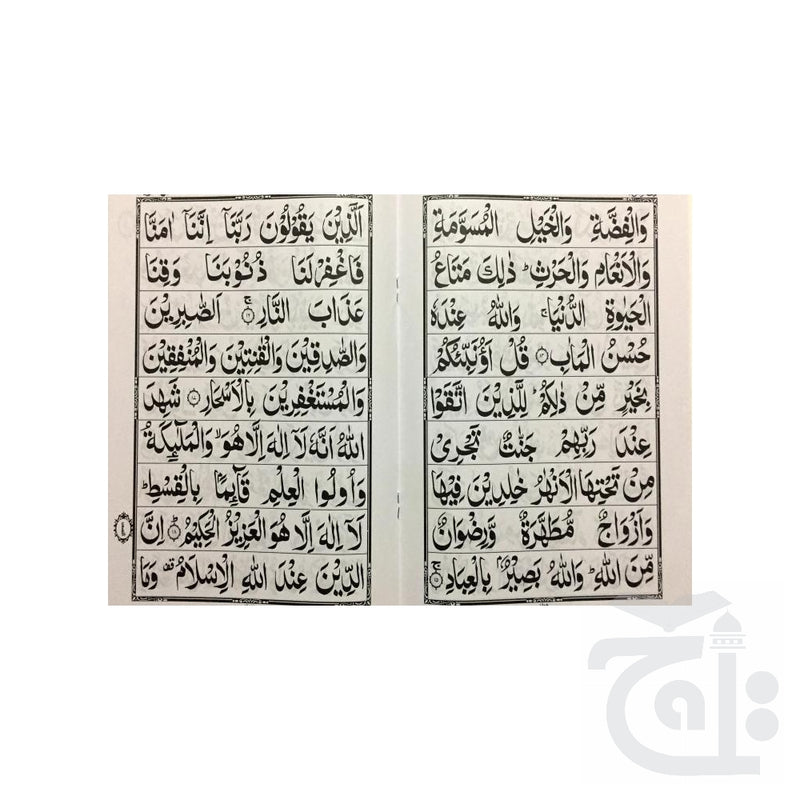 وَالْفِضَّةِ وَالْخَيْلِ الْمُسَوَّمَةِ
وَالْاَنْعَامِ وَالْحَرْثِ ؕ ذٰلِكَ مَتَاعُ
الْحَيٰوةِ الدُّنْيَا ۚ وَاللّٰهُ عِنْدَهٗ
حُسْنُ الْمَاٰبِ ﴿۱۴﴾ قُلْ اَؤُنَبِّئُكُمْ
بِخَيْرٍ مِّنْ ذٰلِكُمْ لِلَّذِيْنَ اتَّقَوْا
عِنْدَ رَبِّهِمْ جَنّٰتٌ تَجْرِىْ
مِنْ تَحْتِهَا الْاَنْهٰرُ خٰلِدِيْنَ فِيْهَا
وَاَزْوَاجٌ مُّطَهَّرَةٌ وَّرِضْوَانٌ
مِّنَ اللّٰهِ ؕ وَاللّٰهُ بَصِيْرٌۢ بِالْعِبَادِ ۚ ﴿۱۵﴾
اَلَّذِيْنَ يَقُوْلُوْنَ رَبَّنَاۤ اِنَّنَاۤ اٰمَنَّا
فَاغْفِرْ لَنَا ذُنُوْبَنَا وَقِنَا
عَذَابَ النَّارِ ۚ ﴿۱۶﴾ اَلصّٰبِرِيْنَ
وَالصّٰدِقِيْنَ وَالْقٰنِتِيْنَ وَالْمُنْفِقِيْنَ
وَالْمُسْتَغْفِرِيْنَ بِالْاَسْحَارِ ﴿۱۷﴾ شَهِدَ
اللّٰهُ اَنَّهٗ لَاۤ اِلٰهَ اِلَّا هُوَ ۙ وَالْمَلٰٓئِكَةُ
وَاُولُوا الْعِلْمِ قَآئِمًۢا بِالْقِسْطِ ؕ
لَاۤ اِلٰهَ اِلَّا هُوَ الْعَزِيْزُ الْحَكِيْمُ ؕ ﴿۱۸﴾ اِنَّ
الدِّيْنَ عِنْدَ اللّٰهِ الْاِسْلَامُ ۫ وَمَا